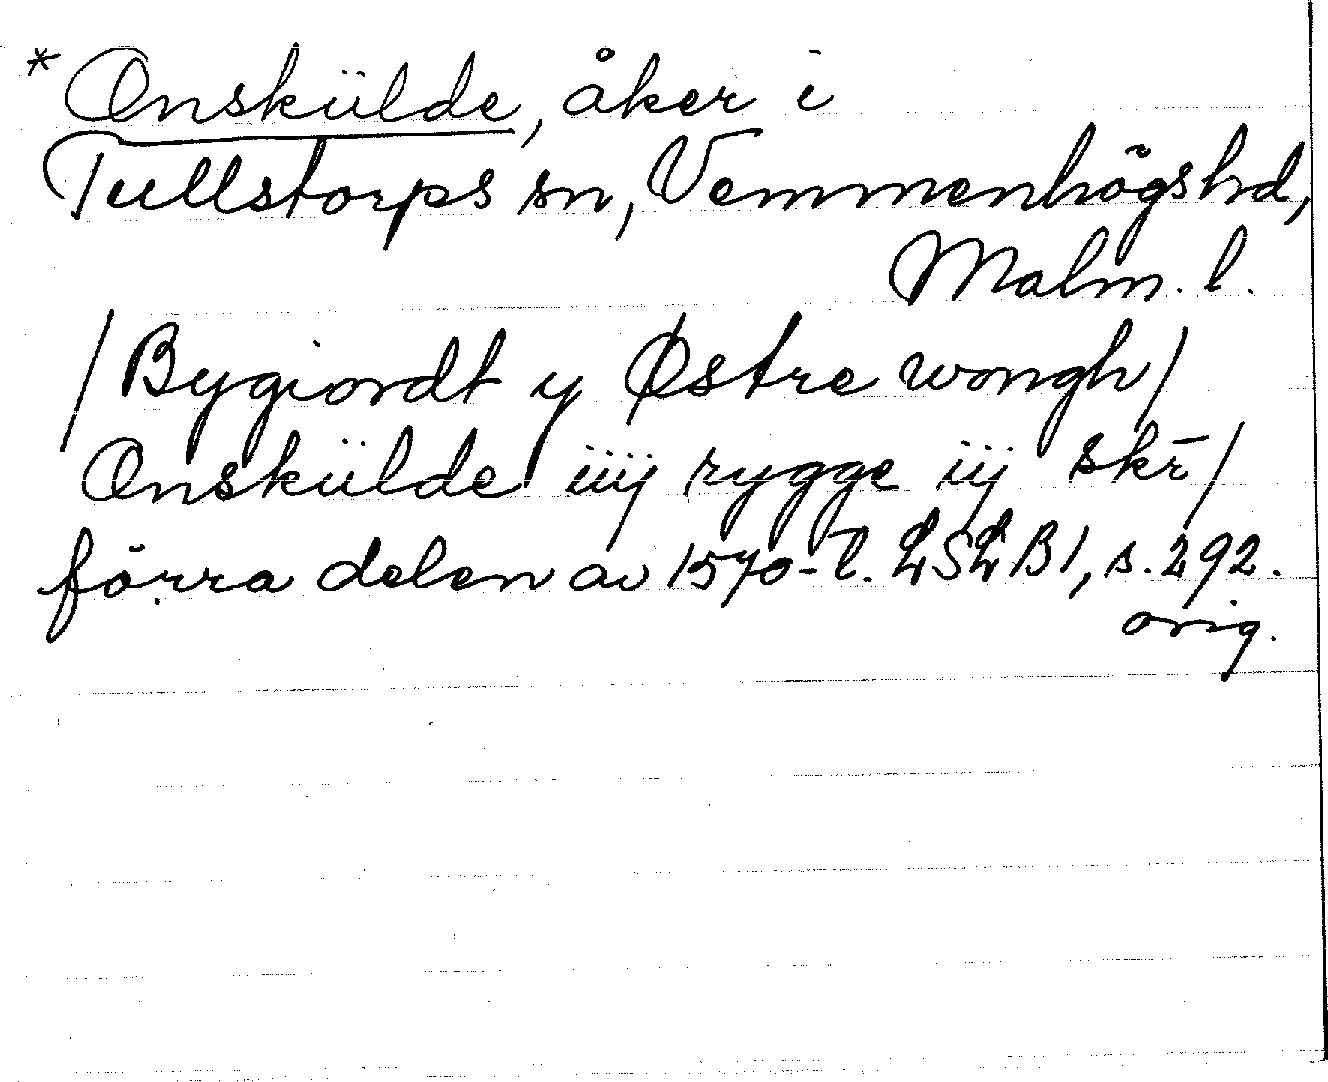 * Onskülde, åker i
Tullstorps sn, Vemmenhögs hd,
Malm. l.
/ Bygiordt y Østre wongh /
Onskülde iiij rygge iij skr̄ /
förra delen av 1570-t. LSLB1, s. 292.
orig.